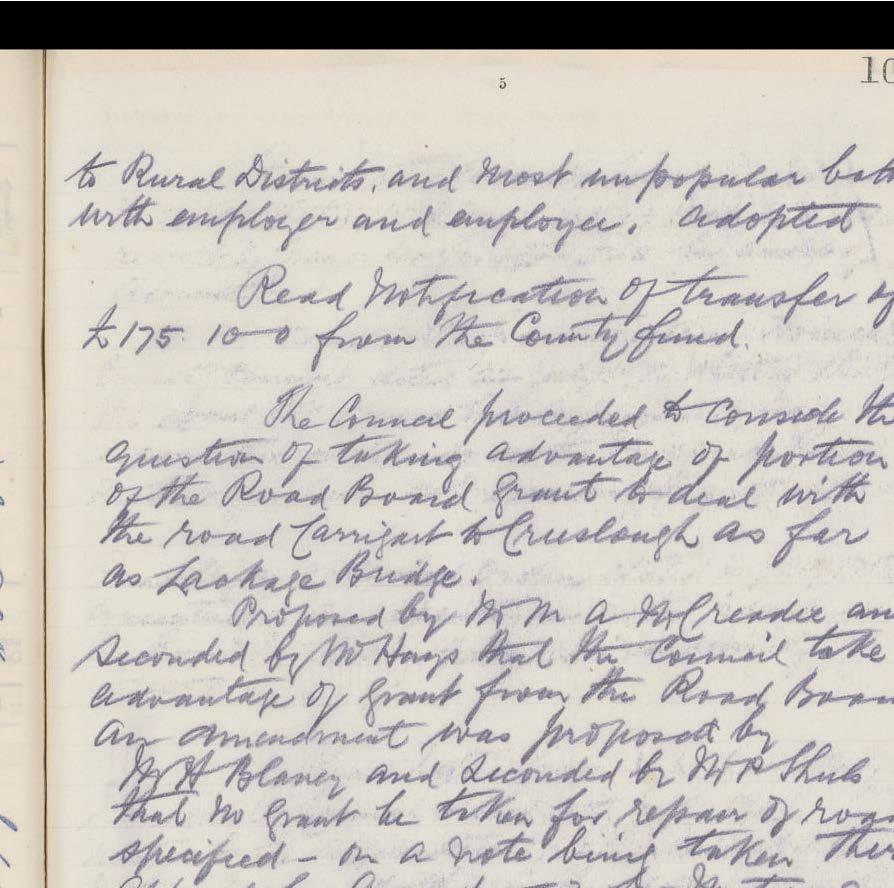 5
10
to Rural Districts, and most unpopular both
with employer and employee. Adopted
Read Notification of transfer of
£175. 10-0 from the County fund.
The Council proceeded to conside the
question of taking advantage of portion
of the Road Board grant to deal with
the road Carrigart to Creeslough as far
as Lackage Bridge.
Proposed by Mr M A McCreadie an
seconded by Mr Hays that the Council take
advantage of grant from the Road Boa
An amendment was proposed by
Mr H Blaney and seconded by Mr P
that no grant be taken for repair of roa
specified - on a vote being taken ther